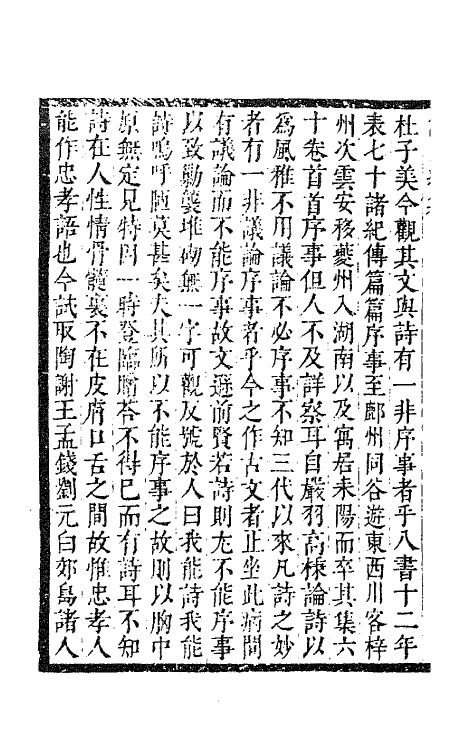 杜子美今觀其文與詩有一非序事者乎八書十二年
表七十諸紀傳篇篇序事至鄜州同谷遊東西川客梓
州次雲安移夔州入湖南以及寓居耒陽而卒其集六
十卷首首序事但人不及詳察耳自嚴羽高棅論詩以
爲風雅不用議論不必序事不知三代以來凡詩之妙
者有一非議論序事者乎今之作古文者止坐此病間
有議論而不能序事故文遜前賢若詩則尤不能序事
以致勦襲堆砌無一字可觀反號於人曰我能詩我能
詩嗚呼陋莫甚矣夫其所以不能序事之故則以胸中
原無定見特因一時登臨贈荅不得已而有詩耳不知
詩在人性情骨髓裏不在皮膚口舌之間故惟忠孝人
能作忠孝語也今試取陶謝王孟錢劉元白郊島諸人